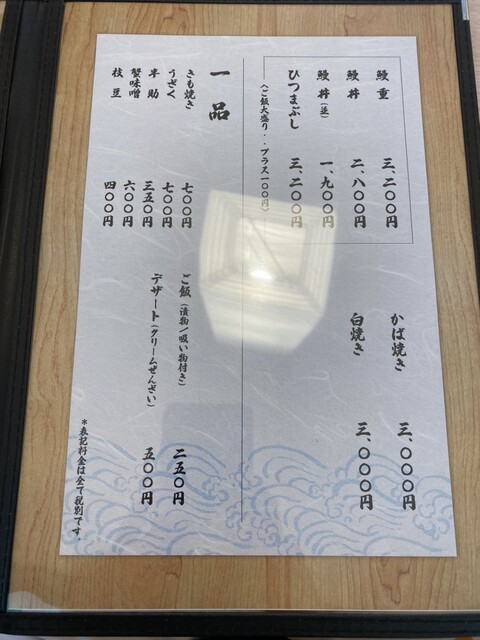 鰻重 三、二〇〇円
鰻丼 二、八〇〇円
鰻丼(並) 一、九〇〇円
ひつまぶし 三、二〇〇円
(ご飯大盛り・・プラス一〇〇円)
かば焼き 三、〇〇〇円
白焼き 三、〇〇〇円
一品
きも焼き 七〇〇円
うざく 七〇〇円
半助 三五〇円
蟹味噌 六〇〇円
枝豆 四〇〇円
ご飯(漬物/吸い物付き) 二五〇円
デザート(クリームぜんざい) 五〇〇円
*表記料金は全て税別です。